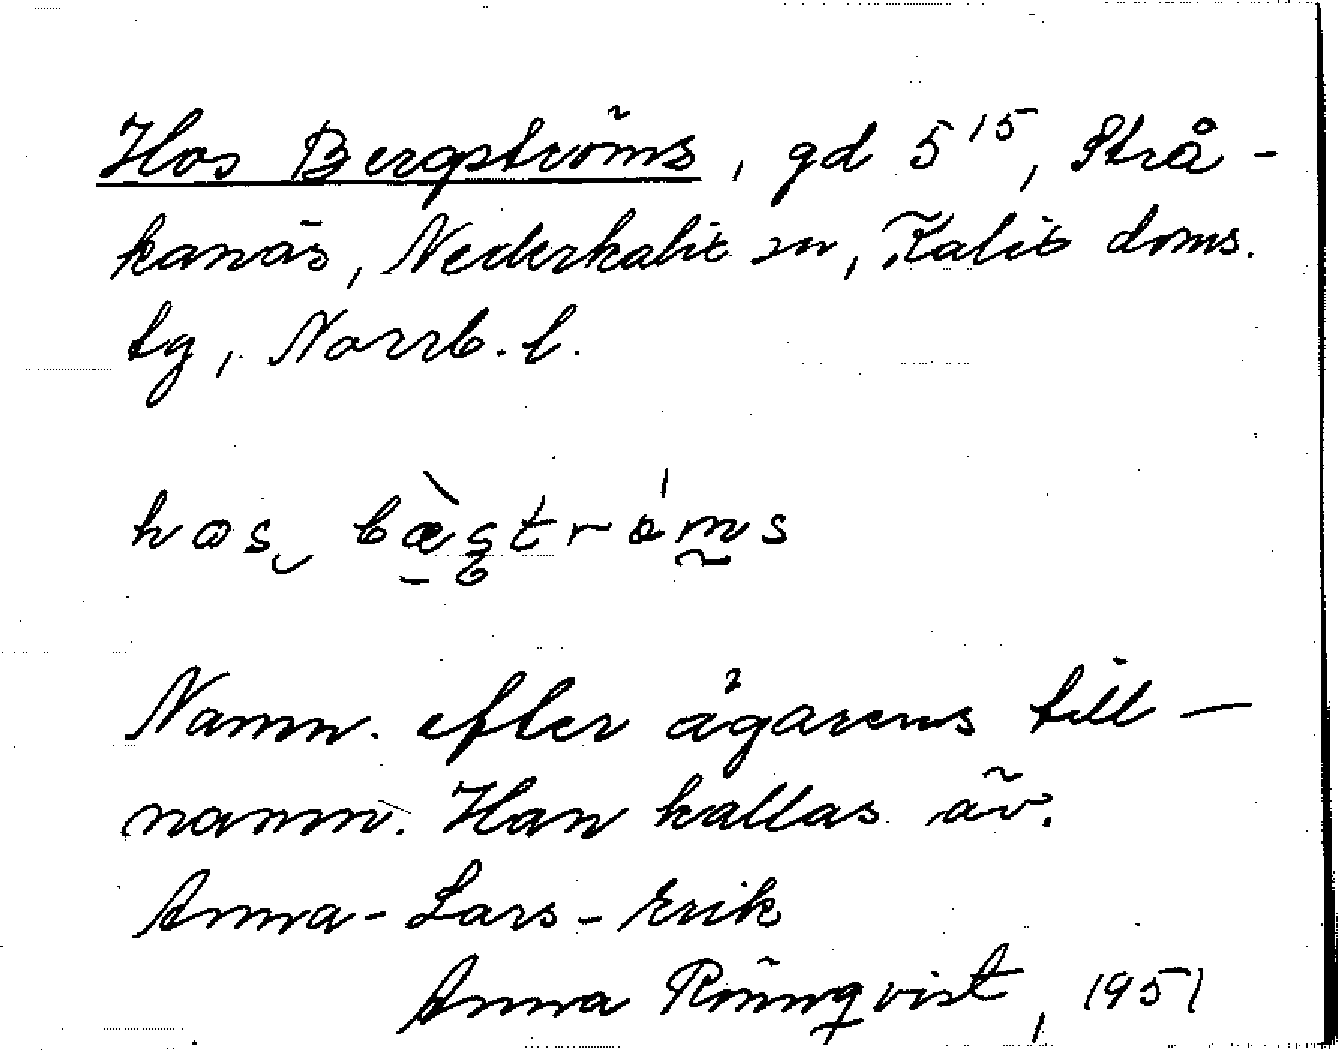 Hos Bergströms, gd 5¹⁵, Strå-
kanäs, Nederkalix sn, Kalix doms.
tg, Norrb. l.
hos bæstrȯms
Namn. efter ägarens till-
namn. Han kallas äv.
Anna-Lars-Erik
Anna Rönnqvist, 1951